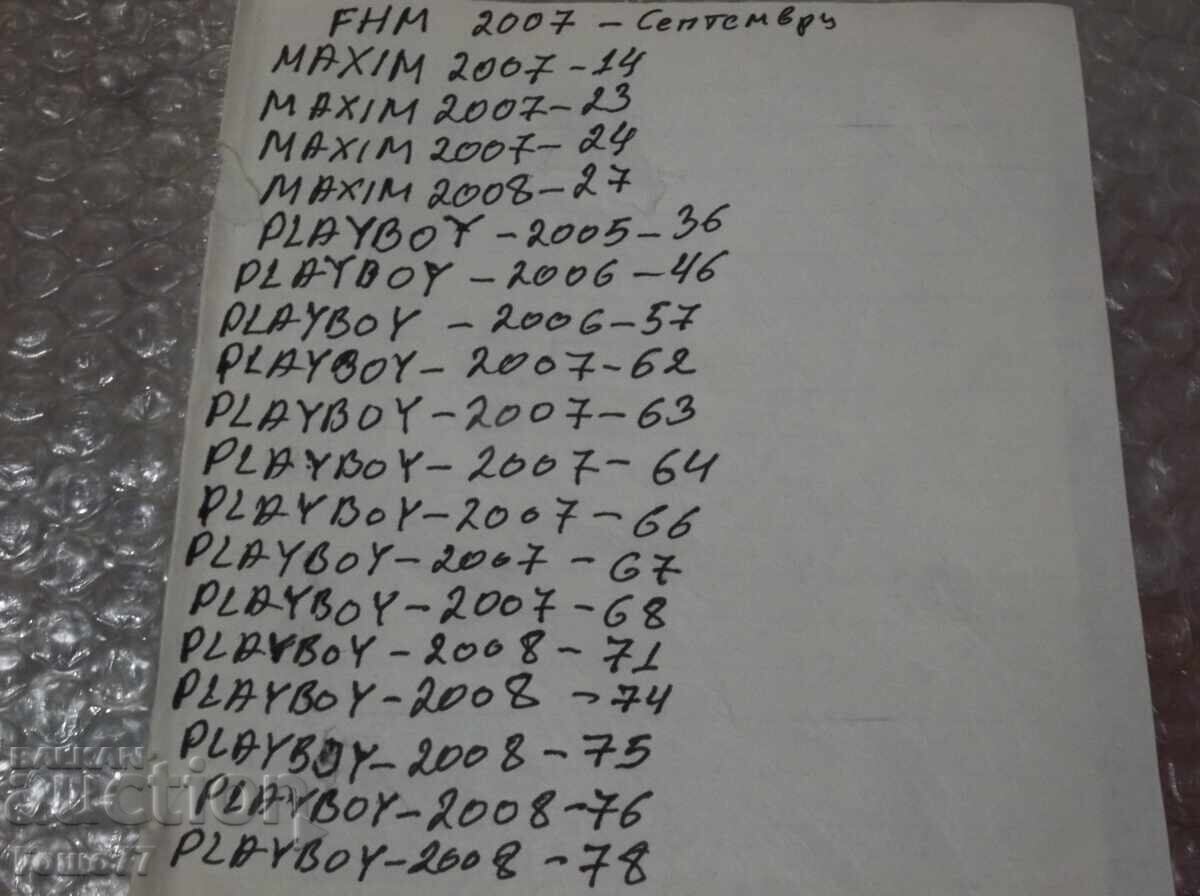 FHM 2007 - Септември
MAXIM 2007-14
MAXIM 2007-23
MAXIM 2007-24
MAXIM 2008-27
PLAYBOY -2005-36
PLAYBOY -2006-46
PLAYBOY -2006-57
PLAYBOY-2007-62
PLAYBOY-2007-63
PLAYBOY-2007-64
PLAYBOY-2007-66
PLAYBOY-2007-67
PLAYBOY-2007-68
PLAYBOY-2008-71
PLAYBOY-2008-74
PLAYBOY-2008-75
PLAYBOY-2008-76
PLAYBOY-2008-78
BALKAN
auction